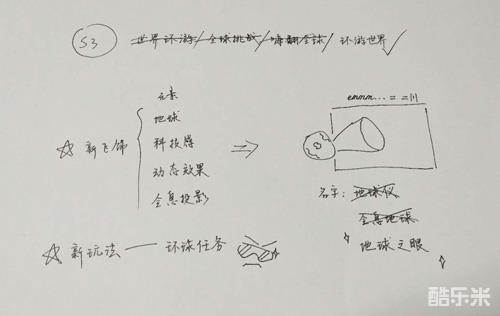 S3 世界环游/全球挑战/嗨翻全球/环游世界
元素
地球
新飞饰 科技感
动态效果
全息投影
emmm... = =|||
名字: 地球仪
全息地球
地球之眼
新玩法——环球任务
酷乐米